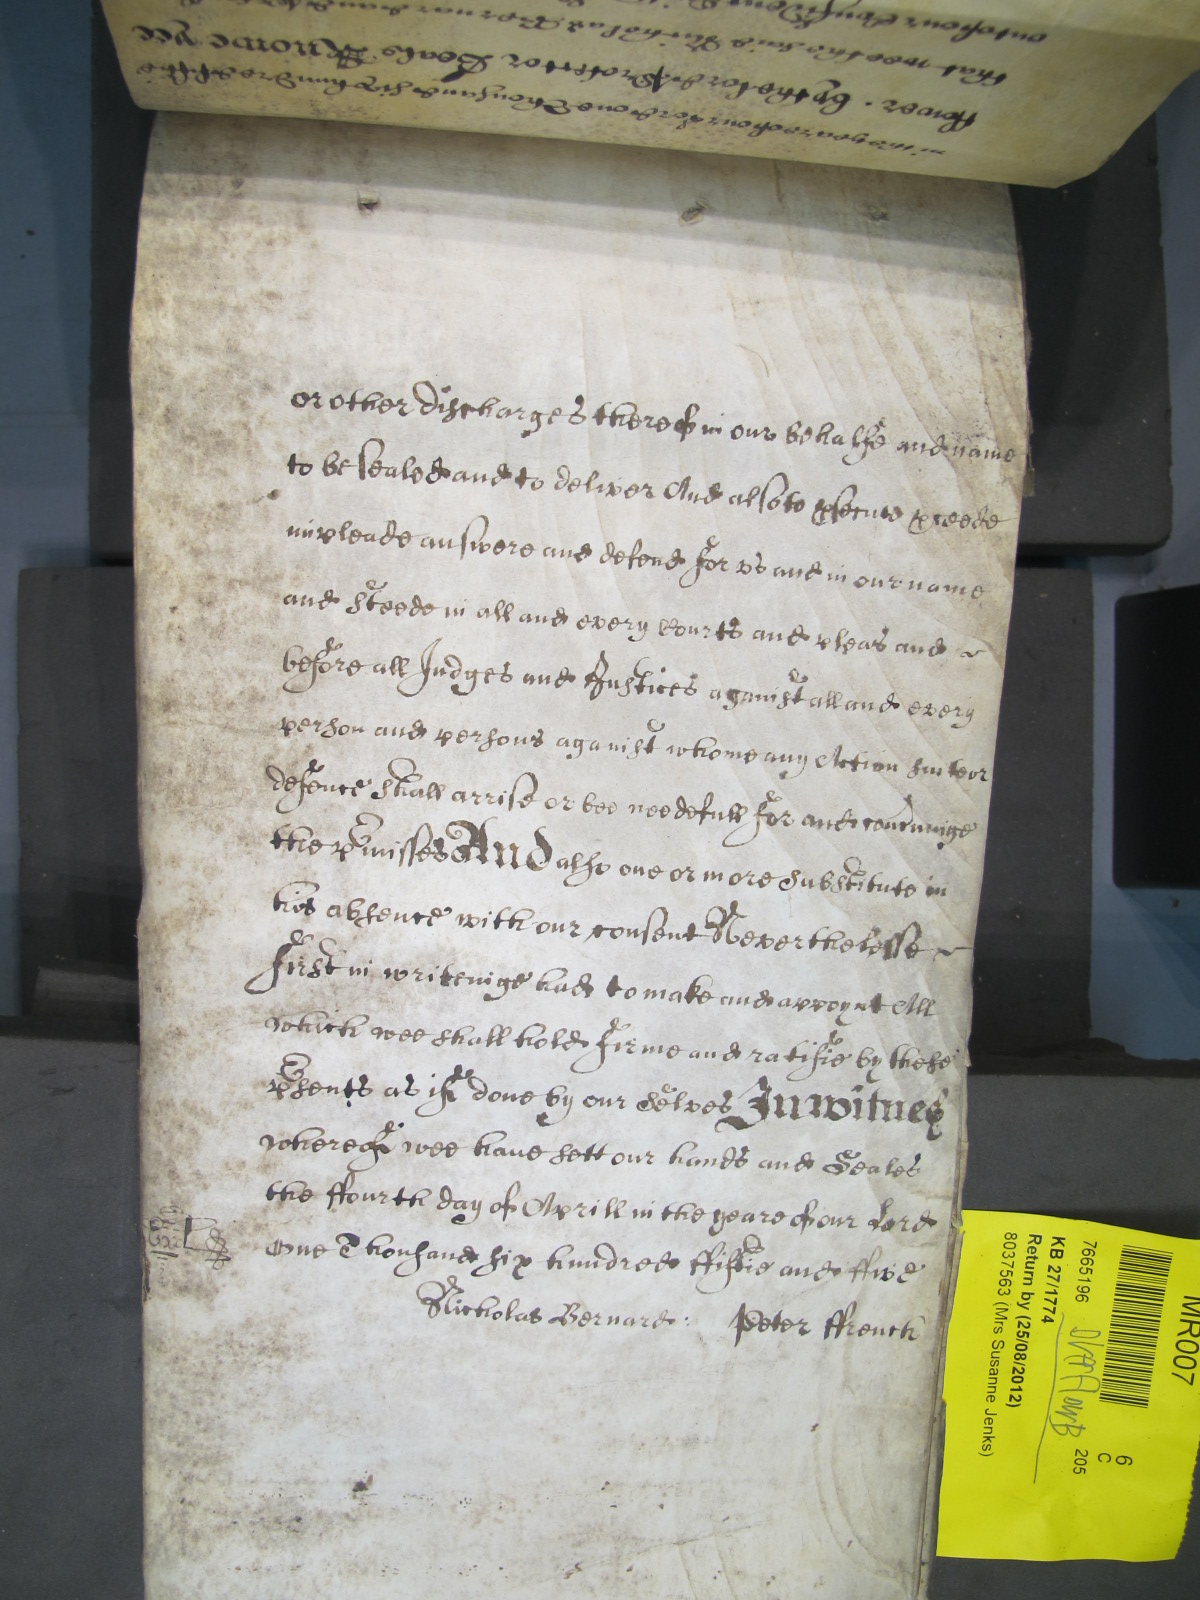 or other discharges thereof in our behalfe and name
to be sealed and to deliver And also to psecute pceede
impleade answere and defend for vs and in our name
and steede in all and every Courts and pleas and ~
before all Judges and Justices against all and every
person and persons against whome any Action suite or
defence shall arrise or bee needefull for and concerninge
the pmisses And also one or more substitute in
his absence with our consent Neverthelesse ~
first in writeinge had to make and appoynt All
which wee shall hold firme and ratifie by these
psents as if done by our selves In witnes
whereof wee have sett our hands and Seales
the ffourth day of Aprill in the yeare of our Lord
One Thousand six hundred ffiftie and ffive
Nicholas Bernard : Peter ffrench
MR007
6
C
205
7665196
KB 27/1774
Return by (25/08/2012)
8037563 (Mrs Susanne Jenks)
that wee the said Nicholas Bernard and
Tower. By the Lord Protector Deale Knowe yee
in the yeare of our Lord one Thousand six hundred fiftie